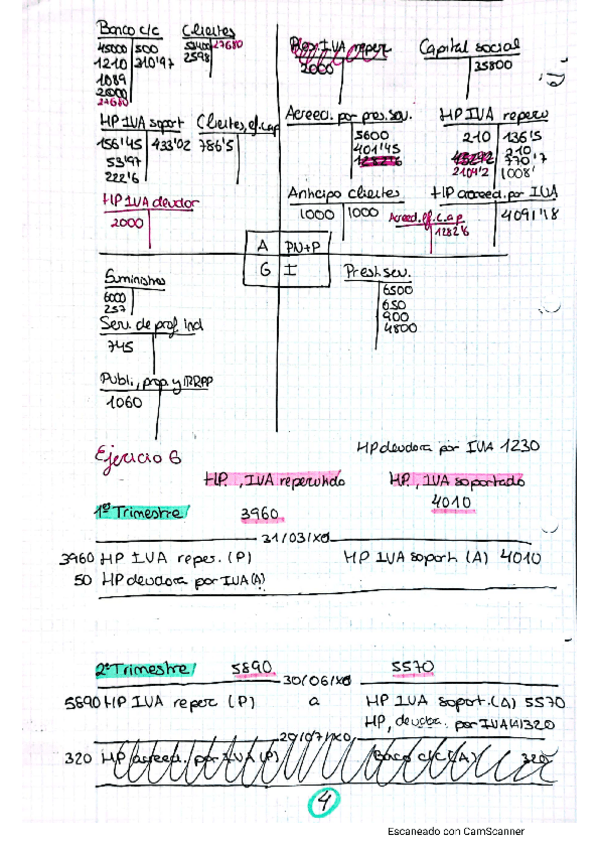 Banco c/c
45000 | 500
1210 | 210'97
1089
2000
27680
Clientes
27680
2598
2000
Capital social
35800
HP IVA soport
156'45 | 433'02
53'97
222'6
Clientes, ef. cap
786'5
Acreed. por pres. serv.
5600
401'45
HP IVA reperc
210 | 136'5
210
370'7
2104'2 | 1008'
HP IVA deudor
2000
Anticipo Clientes
1000 | 1000
Acreed. ef. c. a p
1282'6
HP acreed. por IVA
4091'18
A | PN+P
G | I
Suministros
6000
257
Serv. de prof. ind
745
Publi, prop. y RRPP
1060
Prest. serv.
6500
650
900
4800
Ejercicio 6
HP deudora por IVA 1230
HP, IVA repercutido
HP, IVA soportado
1º Trimestre/
3960
4010
31/03/x0
3960 HP IVA reper. (P)
HP IVA soport. (A) 4010
50 HP deudora por IVA (A)
2º Trimestre/
5890
5570
30/06/x0
5890 HP IVA reper (P) a HP IVA soport. (A) 5570
HP, deudora. por IVA (A) 320
20/07/x0
320 HP acreed. por IVA (P) Banco c/c (A) 320
4
Escaneado con CamScanner